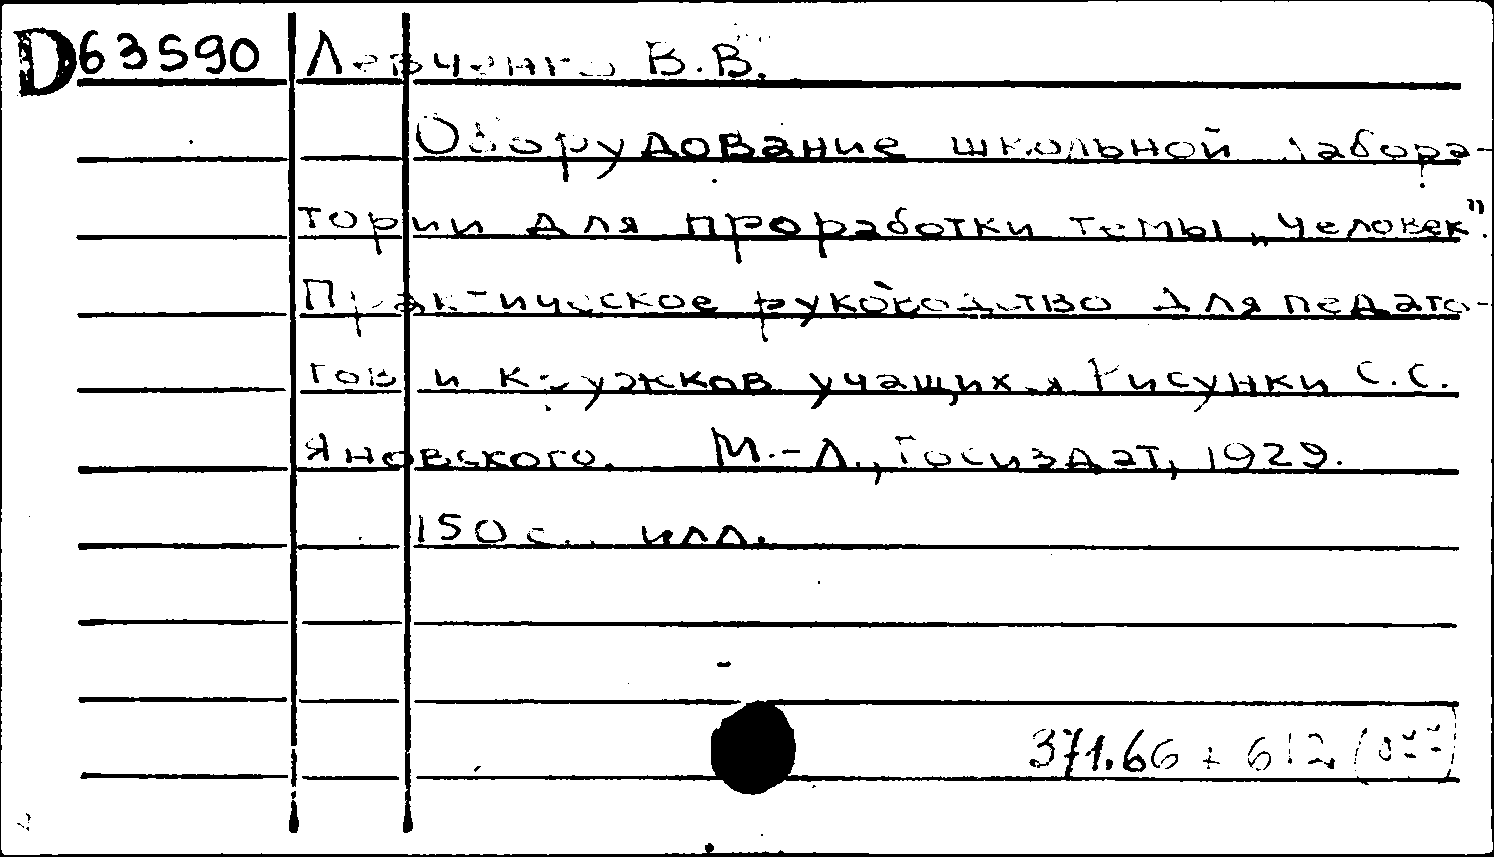 D63590 Левченко В.В.
Оборудование школьной лабора-
тории для проработки темы „Человек".
Практическое руководство для педаго-
гов и кружков учащихся Рисунки С.С.
Яновского. М.-Л., Госиздат, 1929.
150 с. илл.
371.66 + 612